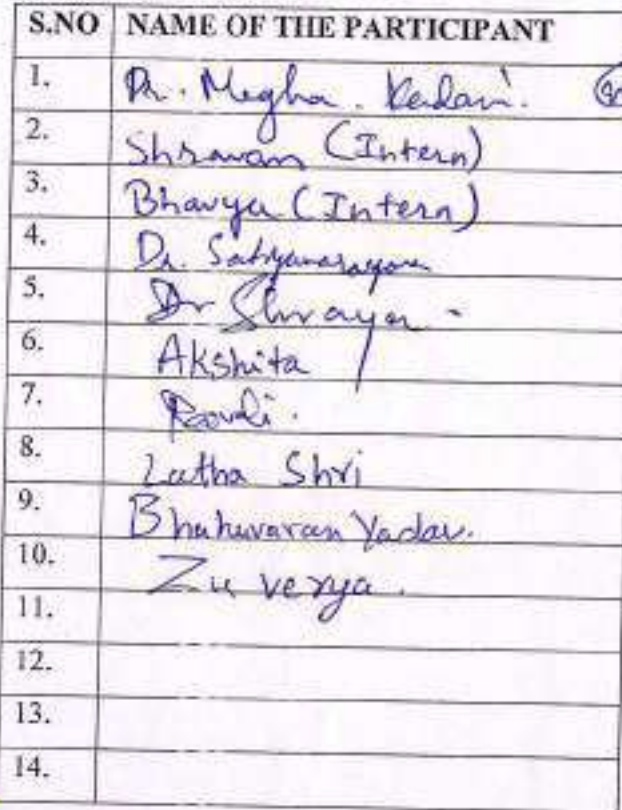 S.NO NAME OF THE PARTICIPANT
1. Dr. Megha. Kadam.
2. Shravan (Intern)
3. Bhavya (Intern)
4. Dr. Satyanarayana
5. Dr Shraya
6. Akshita
7.
8. Latha Shri
9. Yadav.
10. Zuverya.
11.
12.
13.
14.